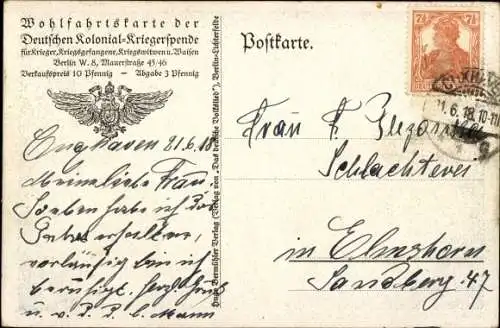 Wohlfahrtskarte der
Deutschen Kolonial-Kriegerspende
für Krieger, Kriegsgefangene, Kriegswitwen u. Waisen
Berlin W. 8, Mauerstraße 45/46
Verkaufspreis 10 Pfennig — Abgabe 3 Pfennig
Cuxhaven 21.6.18
Meine liebe Frau.
Soeben habe ich
erhalten,
vorläufig bin ich
beruhigt. Herzl. Gruß
u. v. d. d. l. Mann
Hugo Bermühler Verlag (Verlag von „Das deutsche Volkslied"), Berlin-Lichterfelde
Postkarte.
7½
7½
21.6.18.10-11
Frau F.
Schlachterei
in Elmshorn
Sandberg 47